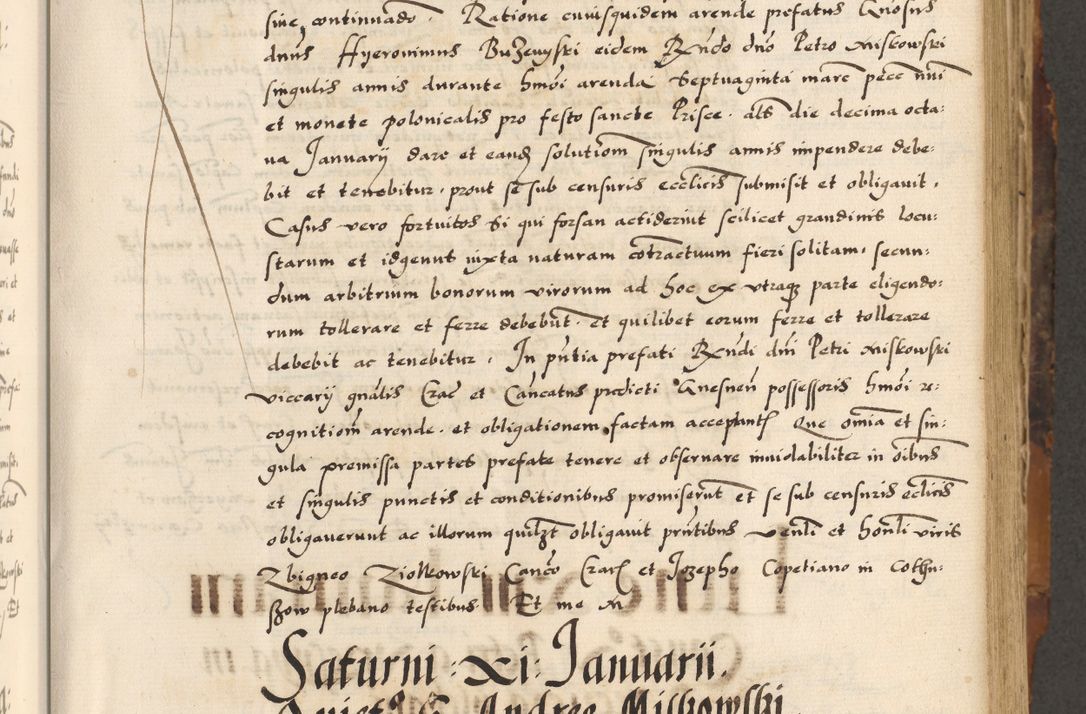 sive continuado. Ratione cuiusquidem arende prefatus Gnosus
dnus Hyeronimus Buzenyski eidem Rndo dno Petro Miskowski
singulis annis durante hmoi arenda Septuaginta marc pecc nui
et monete polonicalis pro festo sancte Prisce. als die decima octa:
va Januarij dare et eand solutiom singulis annis impendere debe:
bit et tenebitur. prout se sub censuris ecclicis submisit et obligavit.
Casus vero fortuitos si qui forsan actiderint scilicet grandinis locu:
starum et idgenus iuxta naturam cotractuum fieri solitam, secun:
dum arbitrium bonorum virorum ad hoc ex utraq parte eligendo:
rum tollerare et ferre debebut. et quilibet eorum ferre et tollerare
debebit ac tenebitur. In pntia prefati Rndi dni Petri Miskowski
viccarij gnalis Crac et Cancatus predicti Gnesnen possessoris hmoi re:
cognitiom arende. et obligationem factam acceptant Que omia et sin:
gula premissa partes prefate tenere et observare inviolabiliter in oibus
et singulis punctis et conditionibus promiserut et se sub censuris eclicis
obligaverunt ac illorum quilzt obligavit pntibus venli et honli viris
Zbigneo Ziolkowski Canco Crac et Jozepho Copetiano in Coth:
szow plebano testibus. Et me M
Saturni xi Januarii.
Andree Miskowski